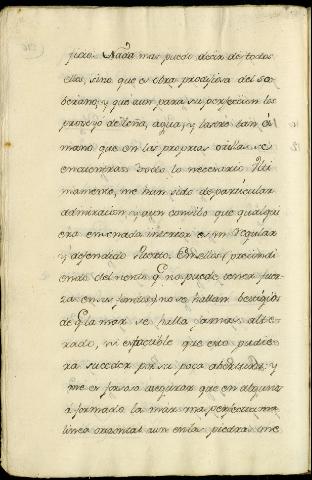 fixo. Nada mas puedo decir de todos
ellos, sino que es obra prodigiosa del so-
berano, y que aun para su perfeccion los
proveyó de leña, agua, y lastre tan á
mano que en las proprias orillas se
encuentra todo lo necesario. Ulti-
mamente, me han sido de particular
admiracion, y aun cada que qualqui
era ensenada interior es un regular
y defendido Puerto. En ellos, prescindi
endo del viento q.e no puede tener fuer-
za en sus fondos, no se hallan vestigios
de q.e la mar se halla jamas alte-
rado, ni es factible que esto pudie-
ra suceder por su poca abertura, y
me es forzoso asegurar que en alguna
á formado la mar una perfectisima
linea orisontal aun en las piedras, me